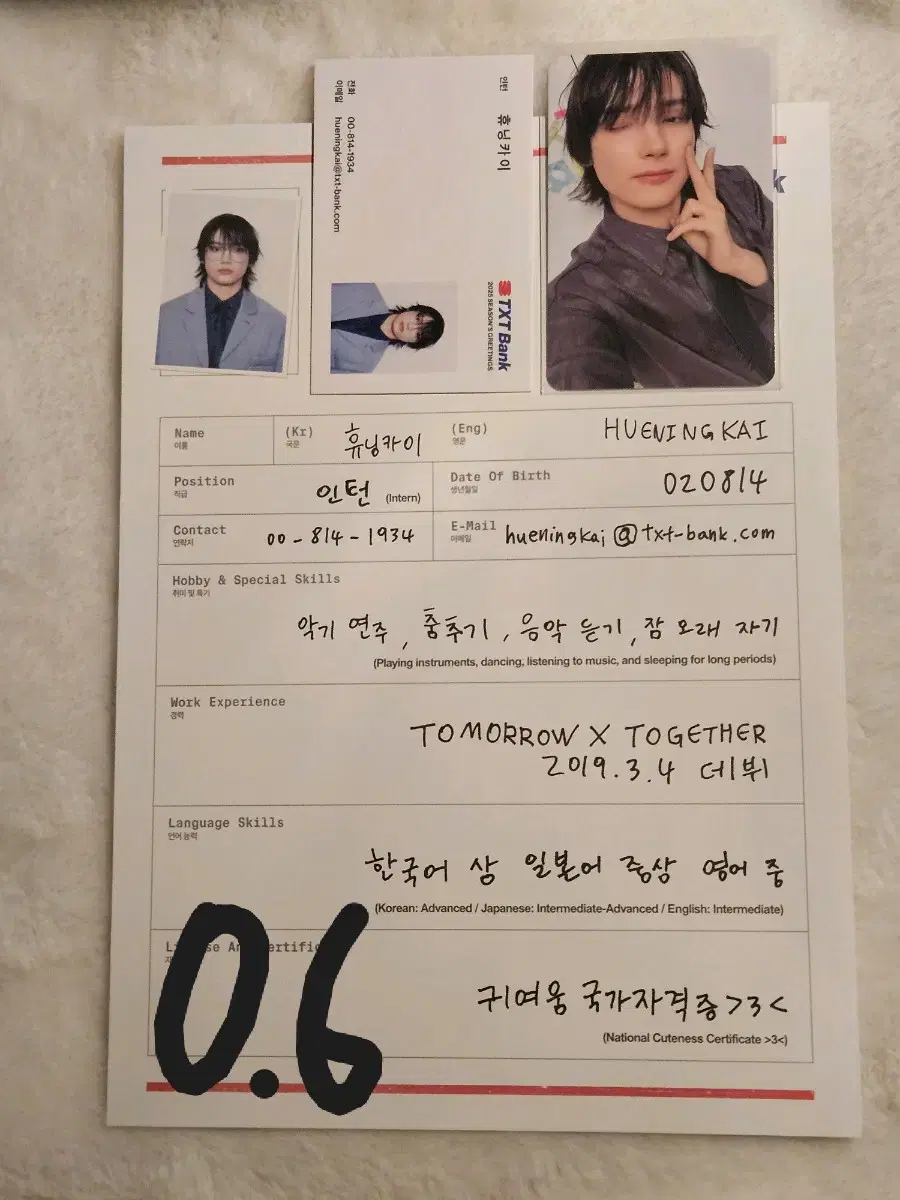 인턴 휴닝카이
전화 00-814-1934
이메일 hueningkai@txt-bank.com
TXT Bank
2025 SEASON'S GREETINGS
k
Name
이름
(Kr)
국문
휴닝카이
(Eng)
영문
HUENINGKAI
Position
직급
인턴 (Intern)
Date Of Birth
생년월일
020814
Contact
연락처
00-814-1934
E-Mail
이메일
hueningkai@txt-bank.com
Hobby & Special Skills
취미 및 특기
악기 연주, 춤추기, 음악 듣기, 잠 오래 자기
(Playing instruments, dancing, listening to music, and sleeping for long periods)
Work Experience
경력
TOMORROW X TOGETHER
2019.3.4 데뷔
Language Skills
언어 능력
한국어 상 일본어 중상 영어 중
(Korean: Advanced / Japanese: Intermediate-Advanced / English: Intermediate)
귀여움 국가자격증 >3<
(National Cuteness Certificate >3<)
0.6